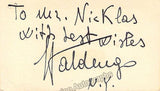 To Mr. Nicklas
with best wishes
Valdengo
N.Y.